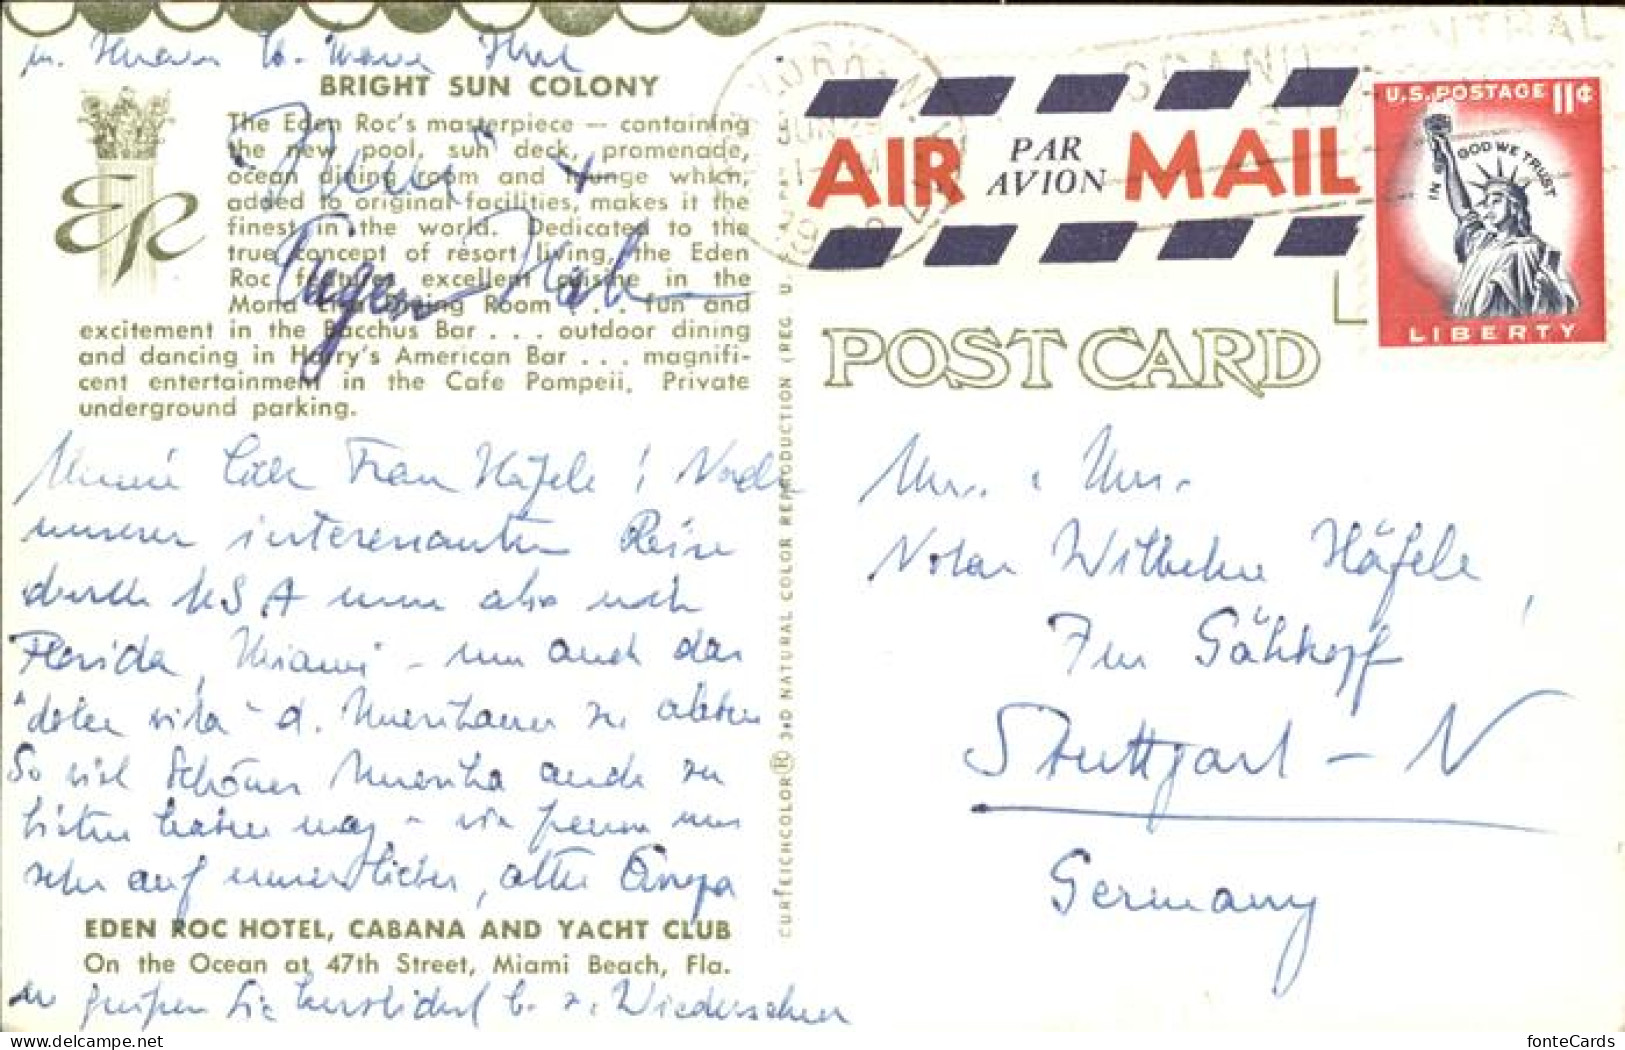 BRIGHT SUN COLONY
The Eden Roc's masterpiece — containing
the new pool, sun deck, promenade,
ocean dining room and lounge which,
added to original facilities, makes it the
finest in the world. Dedicated to the
true concept of resort living, the Eden
Roc features excellent cuisine in the
Mona Lisa Dining Room . . . fun and
excitement in the Bacchus Bar . . . outdoor dining
and dancing in Harry's American Bar . . . magnifi-
cent entertainment in the Cafe Pompeii. Private
underground parking.
ER
Meine liebe Frau Häfele! Nach
unserer interessanten Reise
durch USA nun also noch
Florida, Miami - um auch das
"dolce vita" d. Amerikaner zu erleben
So viel Schönes Amerika auch zu
bieten haben mag - wir freuen uns
sehr auf unser liebes, altes Europa
EDEN ROC HOTEL, CABANA AND YACHT CLUB
On the Ocean at 47th Street, Miami Beach, Fla.
wir grüßen Sie herzlichst b. z. Wiedersehen
Eugen
CURTEICHCOLOR® 3-D NATURAL COLOR REPRODUCTION (REG. U.
AIR MAIL
PAR
AVION
U.S. POSTAGE 11¢
IN GOD WE TRUST
LIBERTY
POST CARD
Mr. & Mrs.
Notar Wilhelm Häfele
Am Gähkopf
Stuttgart - N
Germany
fonteCards